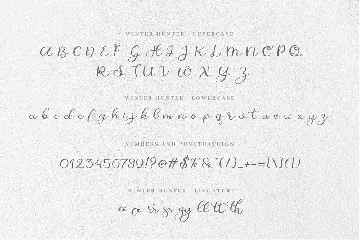 WINTER HUNTER - UPPERCASE
A B C D E F G H I J K L M N O P Q
R S T U V W X Y Z
WINTER HUNTER - LOWERCASE
a b c d e f g h i j k l m n o p q r s t u v w x y z
NUMBERS AND PUNCTUATION
0123456789!?@#$%&
WINTER HUNTER - LIGATURE